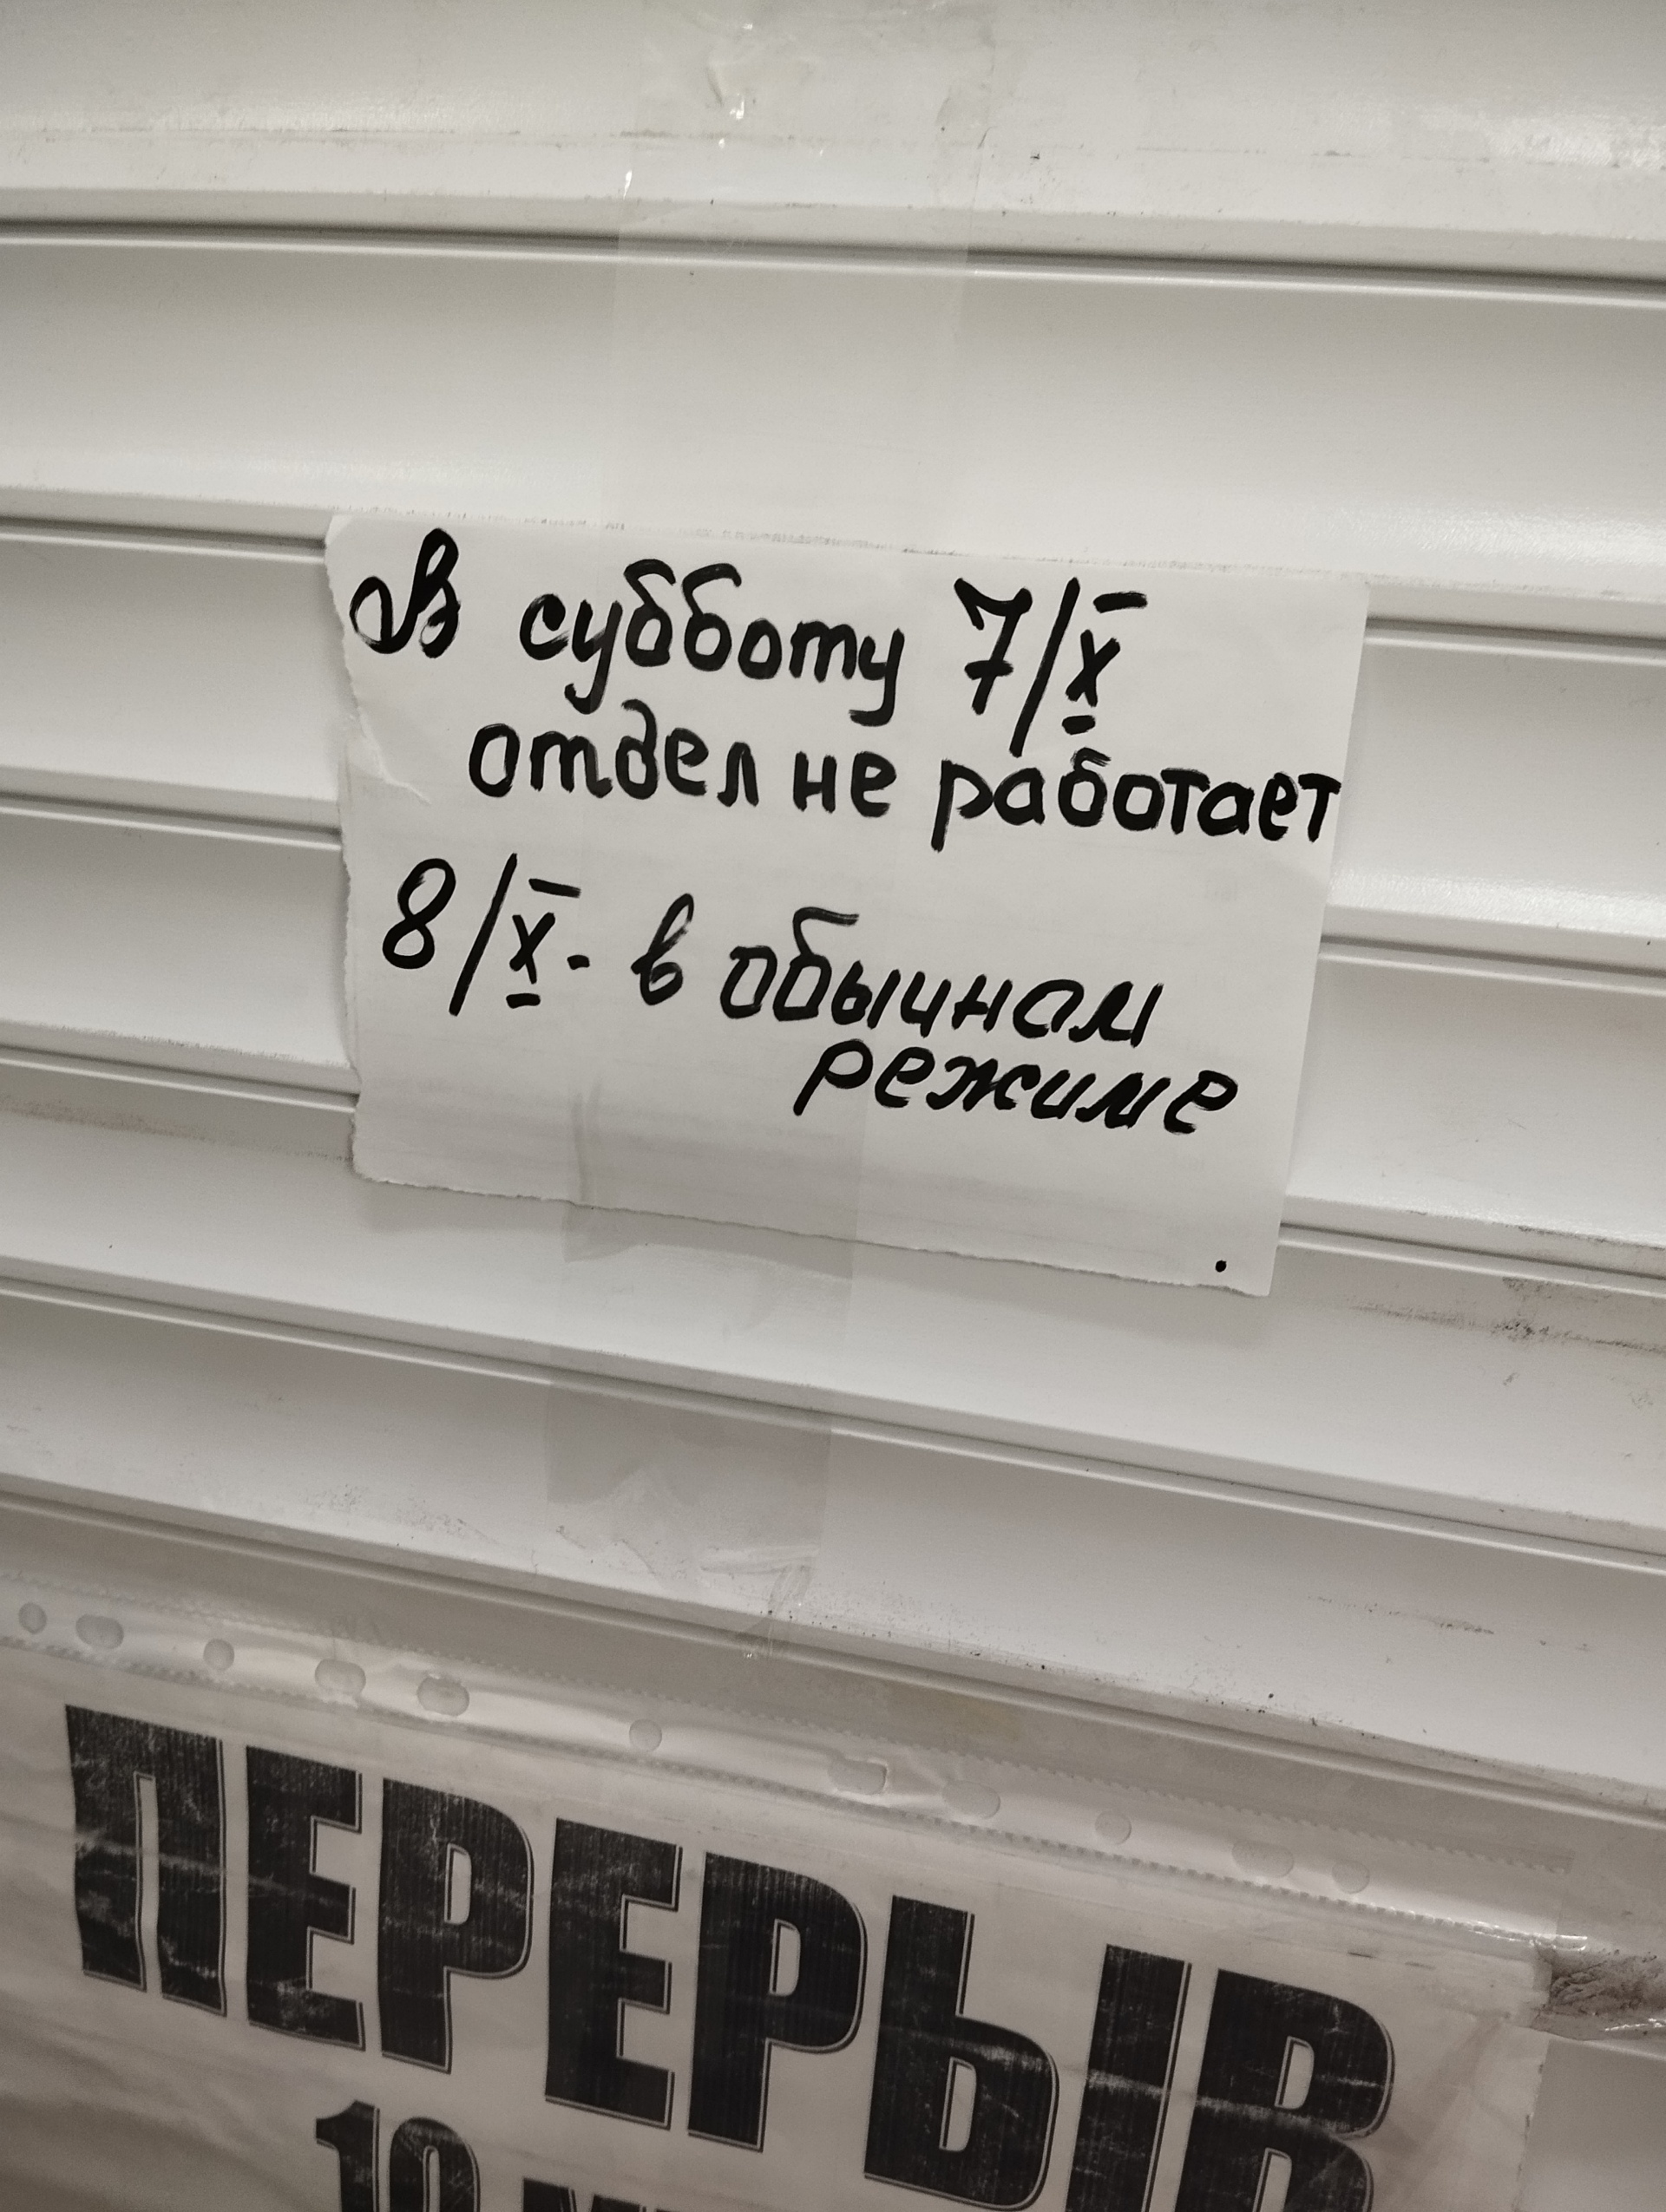 В субботу 7/X
отдел не работает
8/X - в обычном
режиме
ПЕРЕРЫВ
10